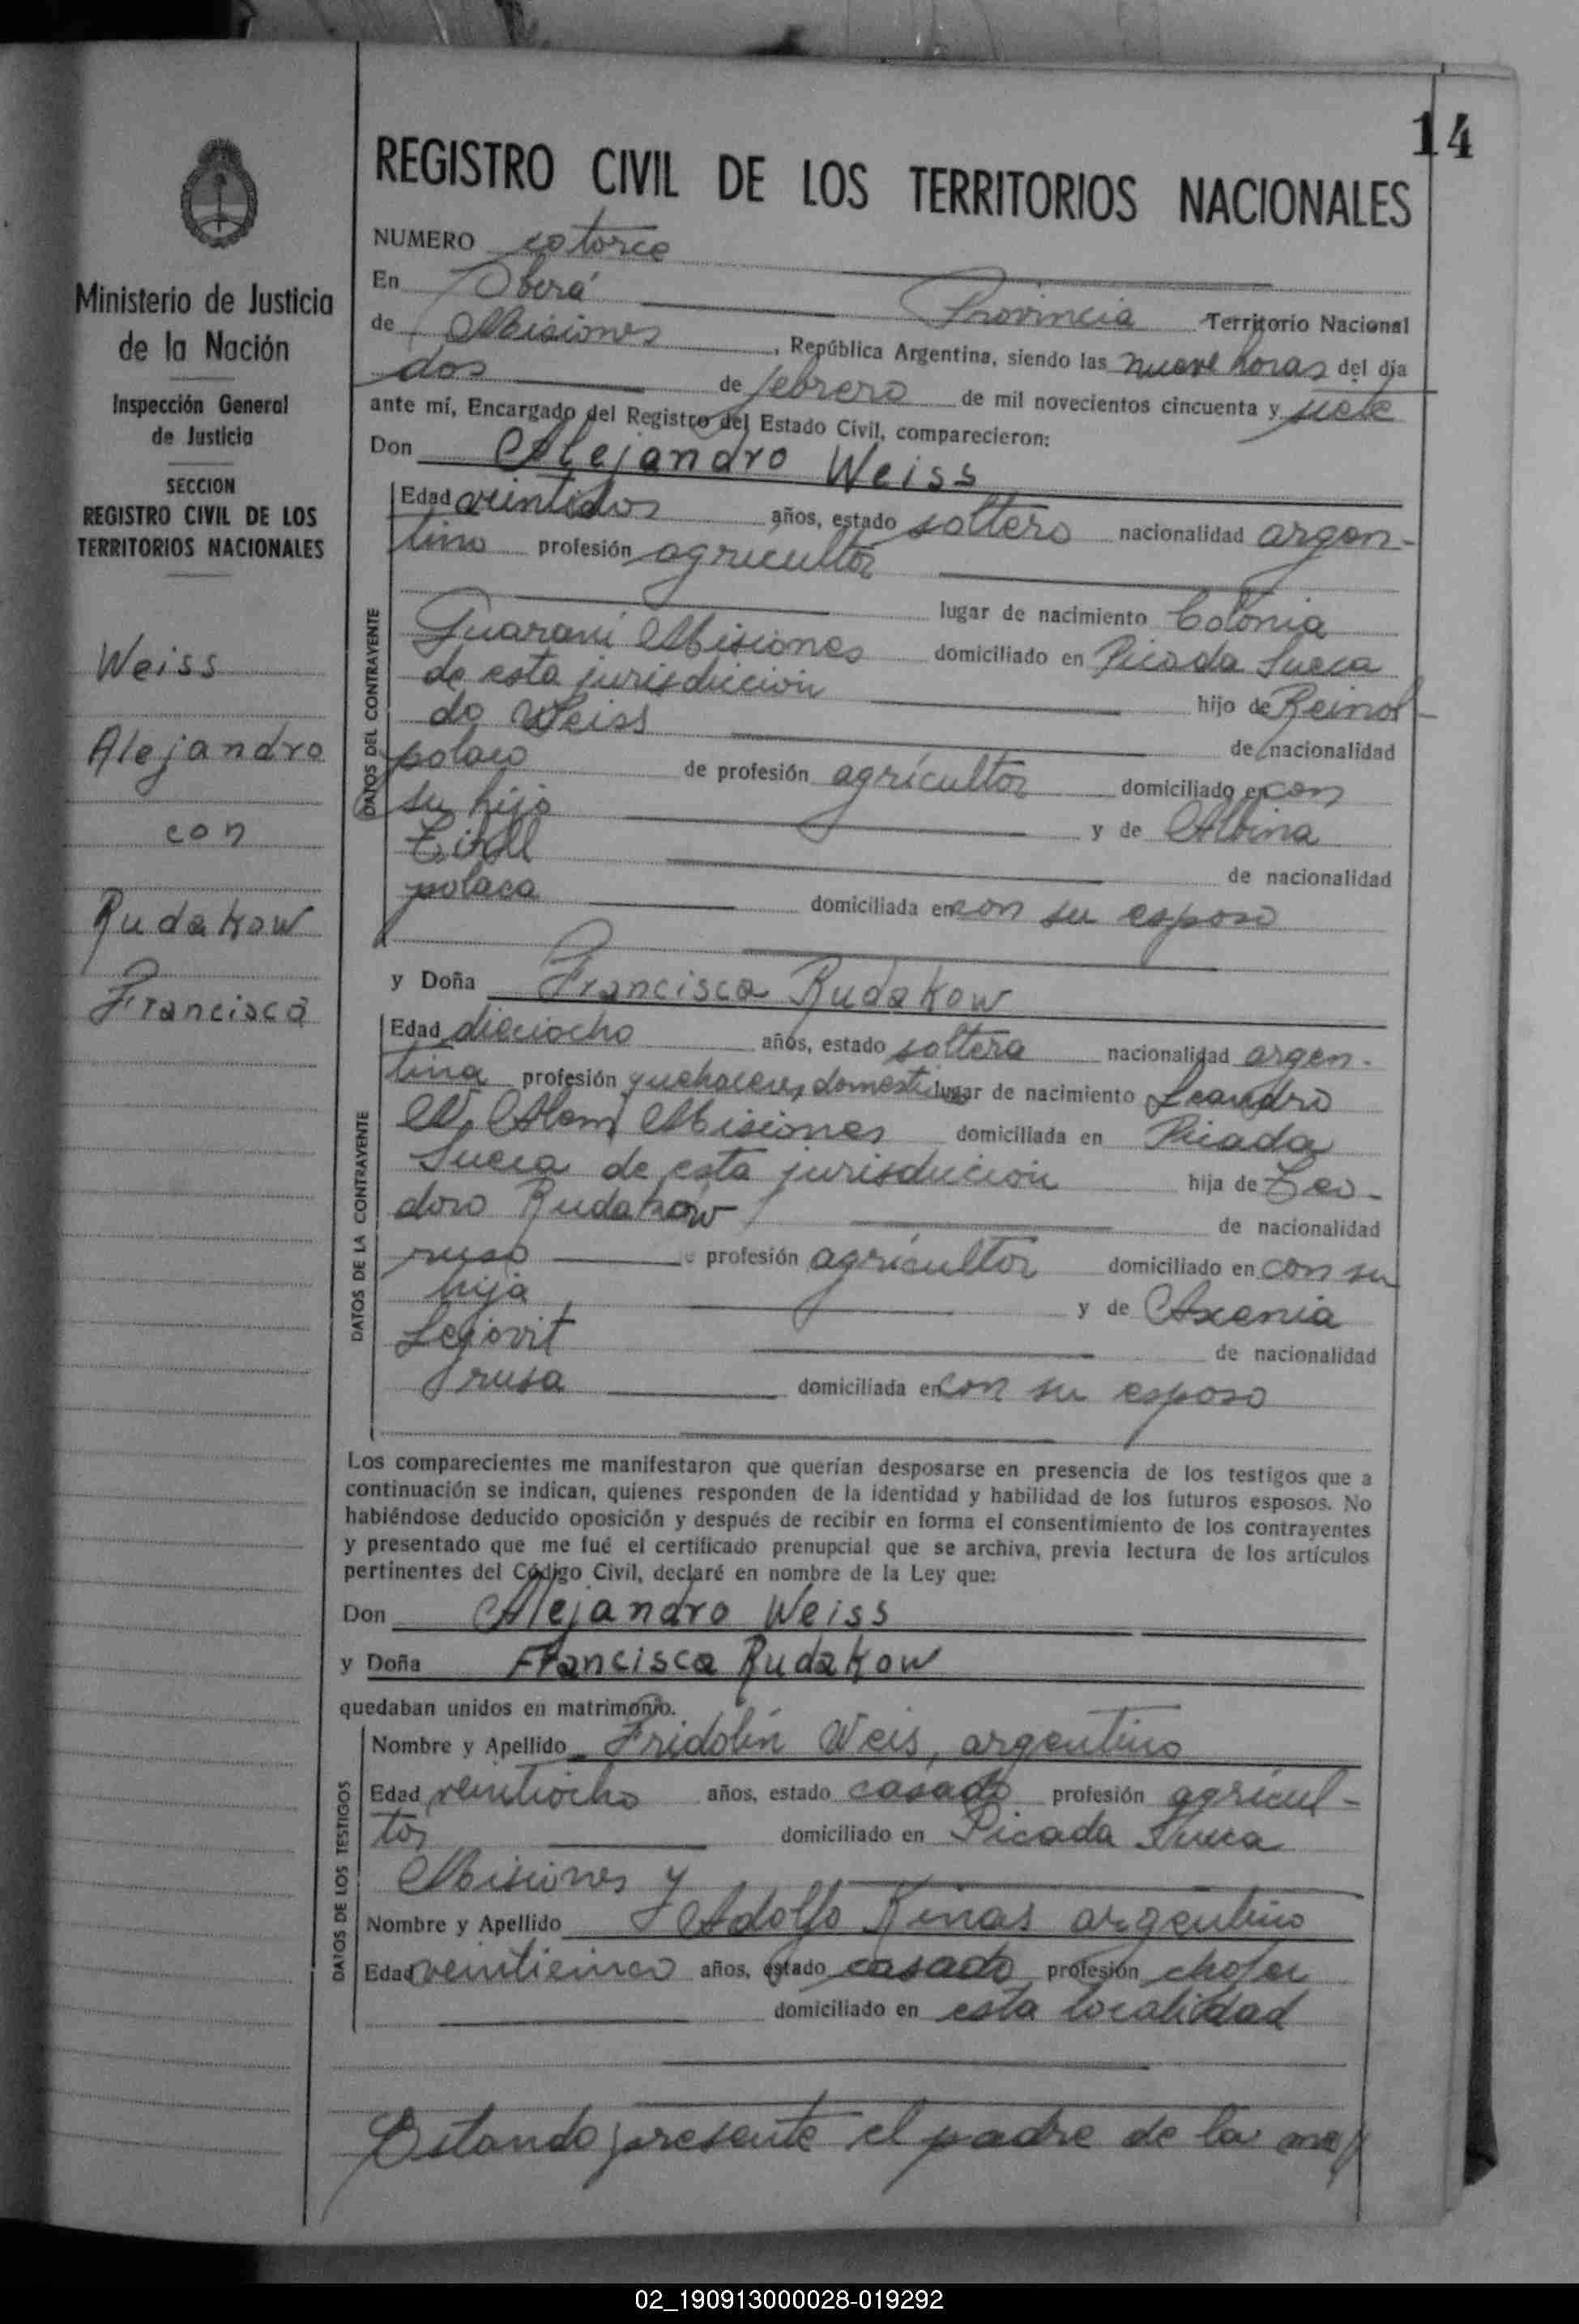 14
Ministerio de Justicia
de la Nación
Inspección General
de Justicia
SECCION
REGISTRO CIVIL DE LOS
TERRITORIOS NACIONALES
Weiss
Alejandro
con
Rudakow
Francisca
REGISTRO CIVIL DE LOS TERRITORIOS NACIONALES
NUMERO catorce
En Oberá Provincia Territorio Nacional
de Misiones, República Argentina, siendo las nueve horas del día
dos de febrero de mil novecientos cincuenta y siete
ante mí, Encargado del Registro del Estado Civil, comparecieron:
Don Alejandro Weiss
DATOS DEL CONTRAYENTE
Edad veintidos años, estado soltero nacionalidad argen-
tino profesión agricultor
lugar de nacimiento Colonia
Guaraní Misiones domiciliado en Picada Sueca
de esta jurisdiccion hijo de Reinol-
do Weiss de nacionalidad
polaco de profesión agricultor domiciliado en con
su hijo y de Albina
de nacionalidad
polaca domiciliada en con su esposo
y Doña Francisca Rudakow
DATOS DE LA CONTRAYENTE
Edad dieciocho años, estado soltera nacionalidad argen-
tina profesión quehaceres domesticos lugar de nacimiento Leandro
N. Alem Misiones domiciliada en Picada
Sueca de esta jurisdiccion hija de Teo-
doro Rudakow de nacionalidad
ruso de profesión agricultor domiciliado en con su
hija y de Axenia
Legovit de nacionalidad
rusa domiciliada en con su esposo
Los comparecientes me manifestaron que querían desposarse en presencia de los testigos que a
continuación se indican, quienes responden de la identidad y habilidad de los futuros esposos. No
habiéndose deducido oposición y después de recibir en forma el consentimiento de los contrayentes
y presentado que me fué el certificado prenupcial que se archiva, previa lectura de los artículos
pertinentes del Código Civil, declaré en nombre de la Ley que:
Don Alejandro Weiss
y Doña Francisca Rudakow
quedaban unidos en matrimonio.
DATOS DE LOS TESTIGOS
Nombre y Apellido Fridolin Weis, argentino
Edad veintiocho años, estado casado profesión agricul-
tor domiciliado en Picada Sueca
Misiones y
Nombre y Apellido Adolfo Kinas argentino
Edad veinticinco años, estado casado profesión chofer
domiciliado en esta localidad
Estando presente el padre de la
02_190913000028-019292